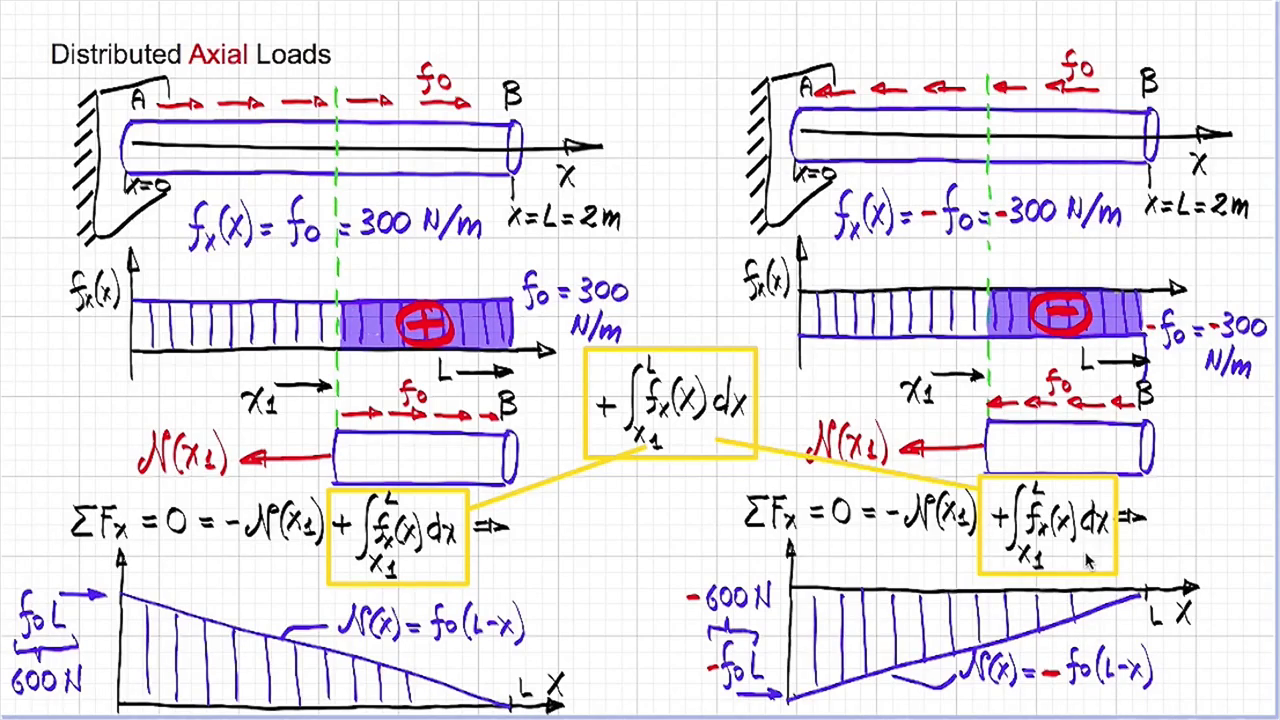 Distributed Axial Loads
f0
A
B
x=0
X
fx(x) = f0 = 300 N/m
x=L=2m
fx(x)
f0 = 300
N/m
L
x1
f0
B
N(x1)
ΣFx = 0 = -N(x1) + ∫x1L fx(x) dx ⇒
f0L
600N
N(x) = f0(L-x)
L X
+ ∫x1L fx(x) dx
f0
A
B
x=0
X
fx(x) = -f0 = -300 N/m
x=L=2m
fx(x)
-f0 = -300
N/m
L
x1
f0
B
N(x1)
ΣFx = 0 = -N(x1) + ∫x1L fx(x) dx ⇒
-600N
-f0L
N(x) = -f0(L-x)
L X